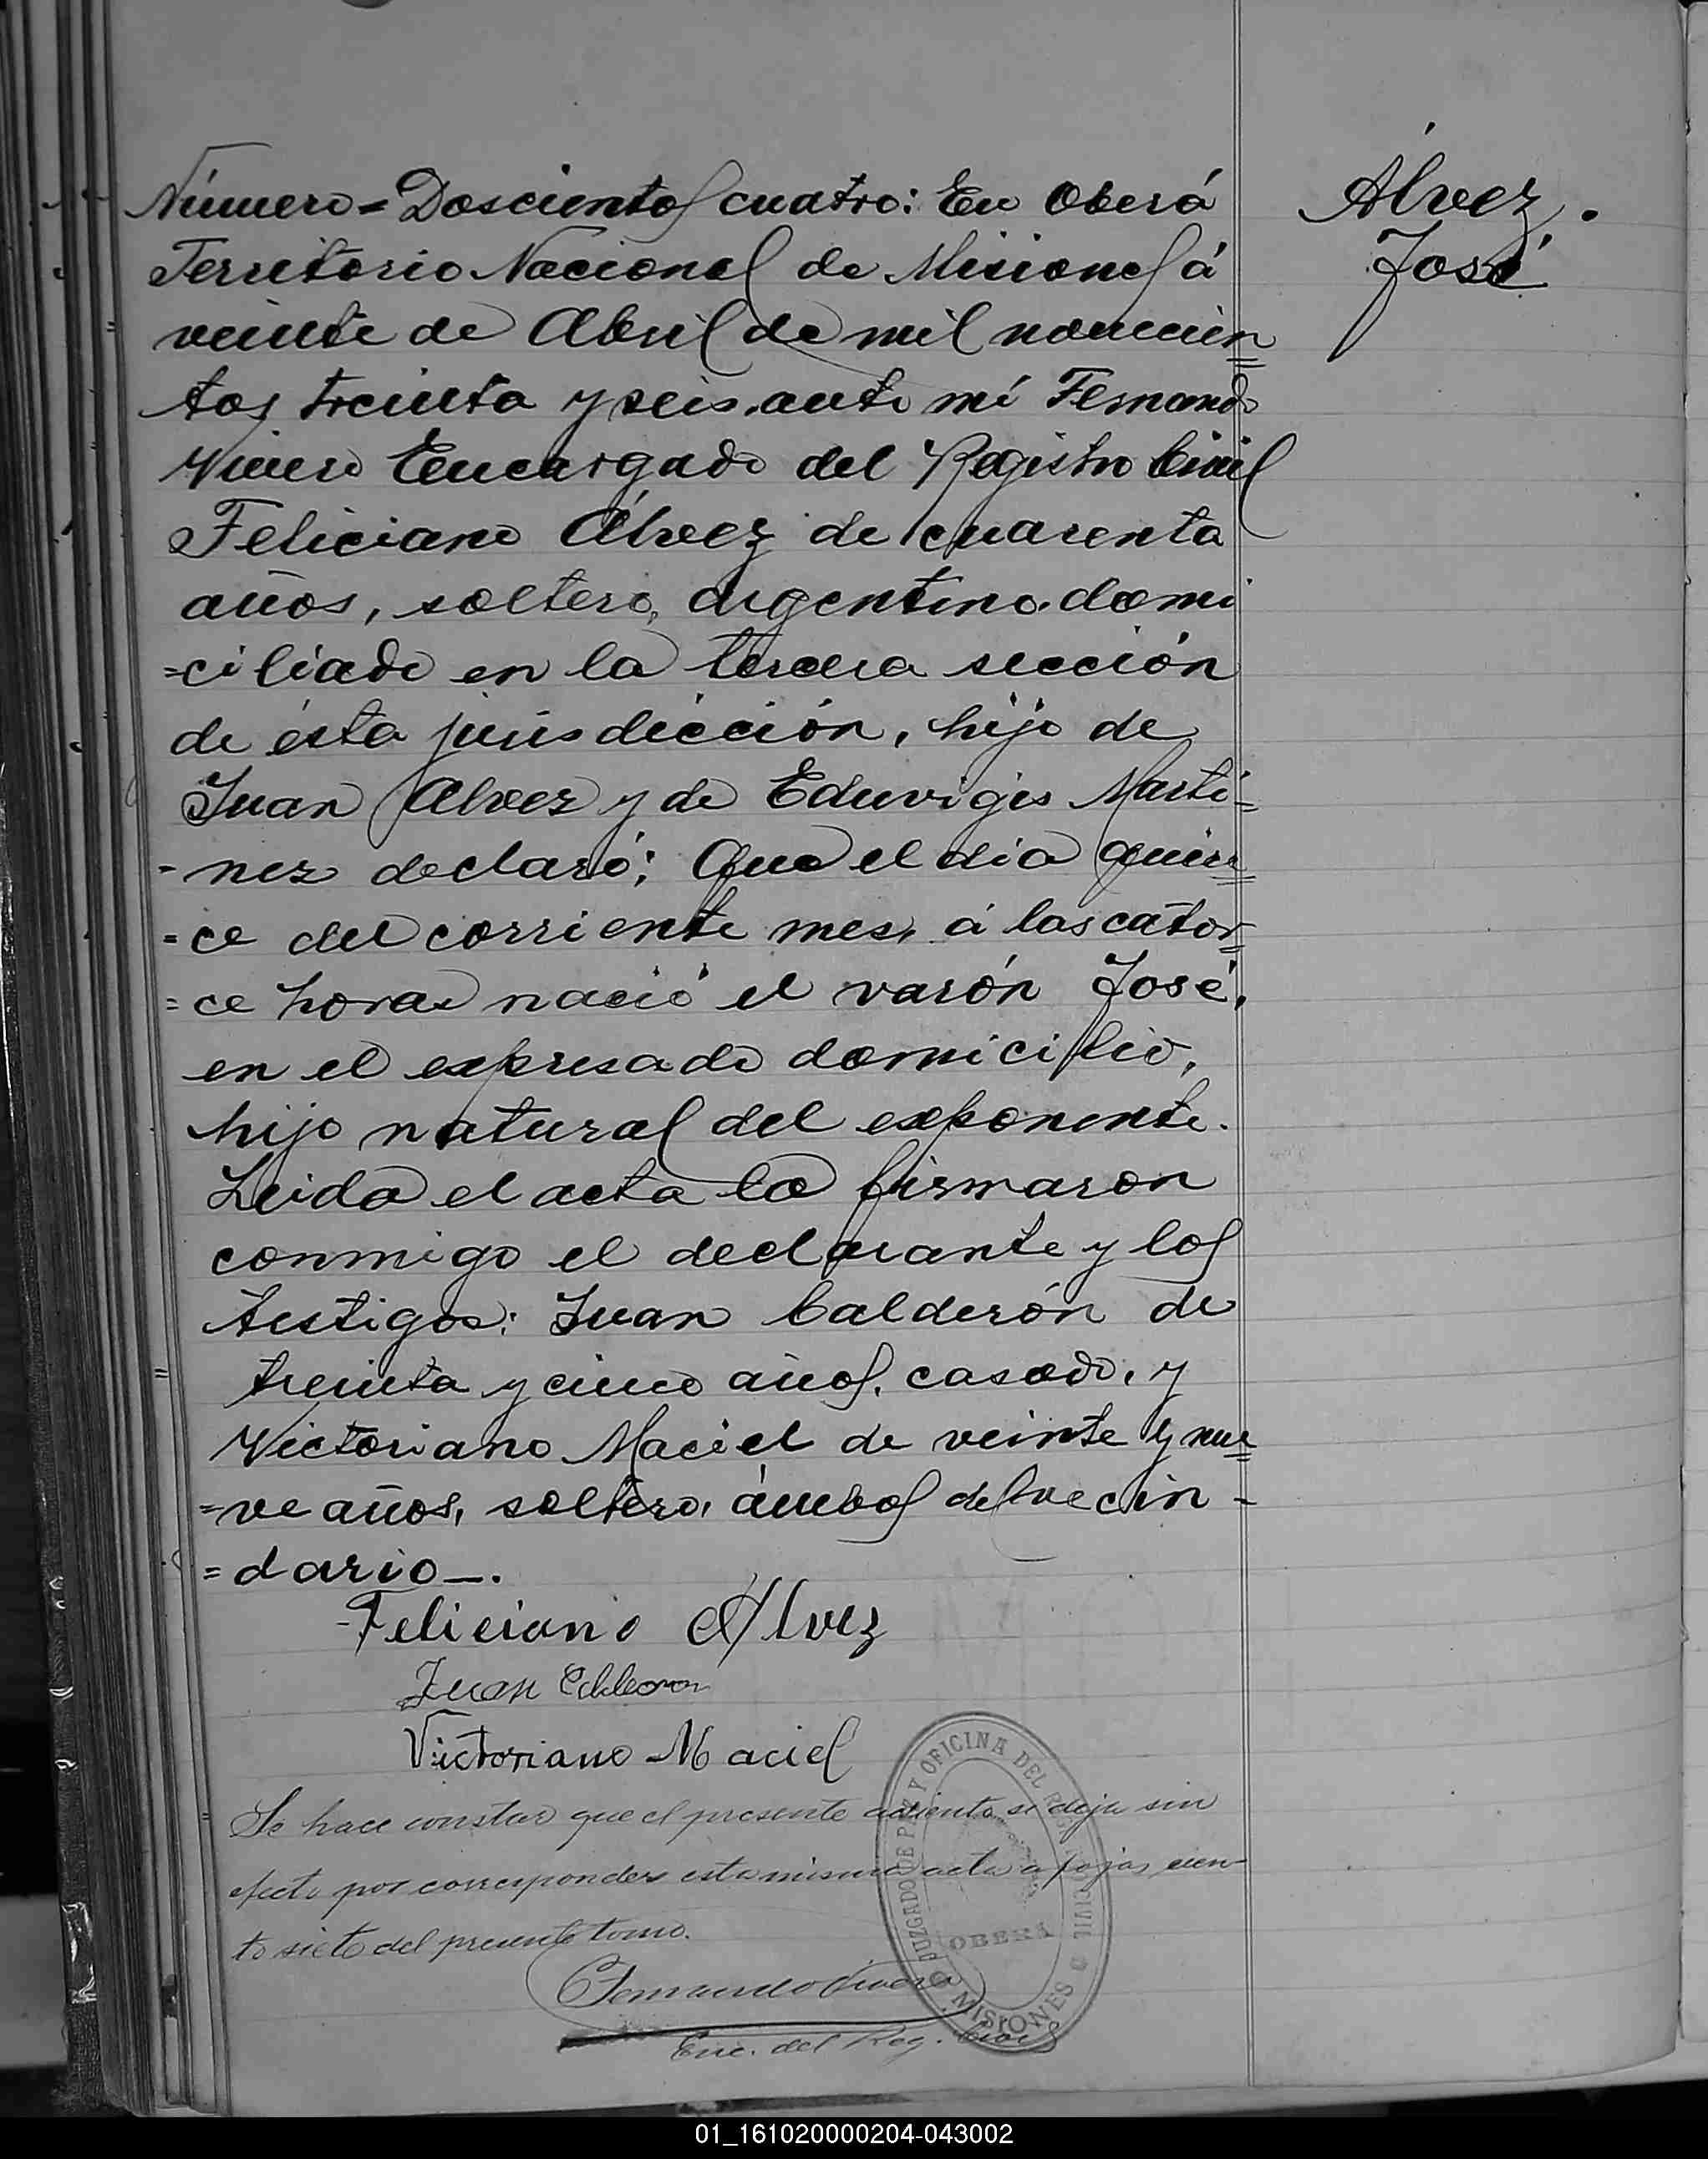 Número = Doscientos cuatro: En Oberá
Territorio Nacional de Misiones á
veinte de Abril de mil novecien=
tos treinta y seis, ante mí Fernando
Vivero Encargado del Registro Civil
Feliciano Álvez de cuarenta
años, soltero, argentino, domi
=ciliado en la tercera sección
de ésta jurisdicción, hijo de
Juan Alvez y de Eduvigis Marti=
-nez declaró: Que el dia quin=
=ce del corriente mes, á las cator=
=ce horas nació el varón José,
en el expresado domicilio,
hijo natural del exponente.
Leida el acta la firmaron
conmigo el declarante y los
testigos: Juan Calderón de
treinta y cinco años, casado, y
Victoriano Maciel de veinte y nue=
=ve años, soltero, ámbos del vecin-
=dario_.
Álvez.
José
Feliciano Alvez
Juan Calderon
Victoriano Maciel
Se hace constar que el presente asiento se deja sin
efecto por corresponder esta misma acta a fojas cien-
to siete del presente tomo.
Fernando Vivero
Enc. del Reg. Civil
JUZGADO DE PAZ Y OFICINA DEL REGISTRO CIVIL
OBERÁ
MISIONES
01_161020000204-043002